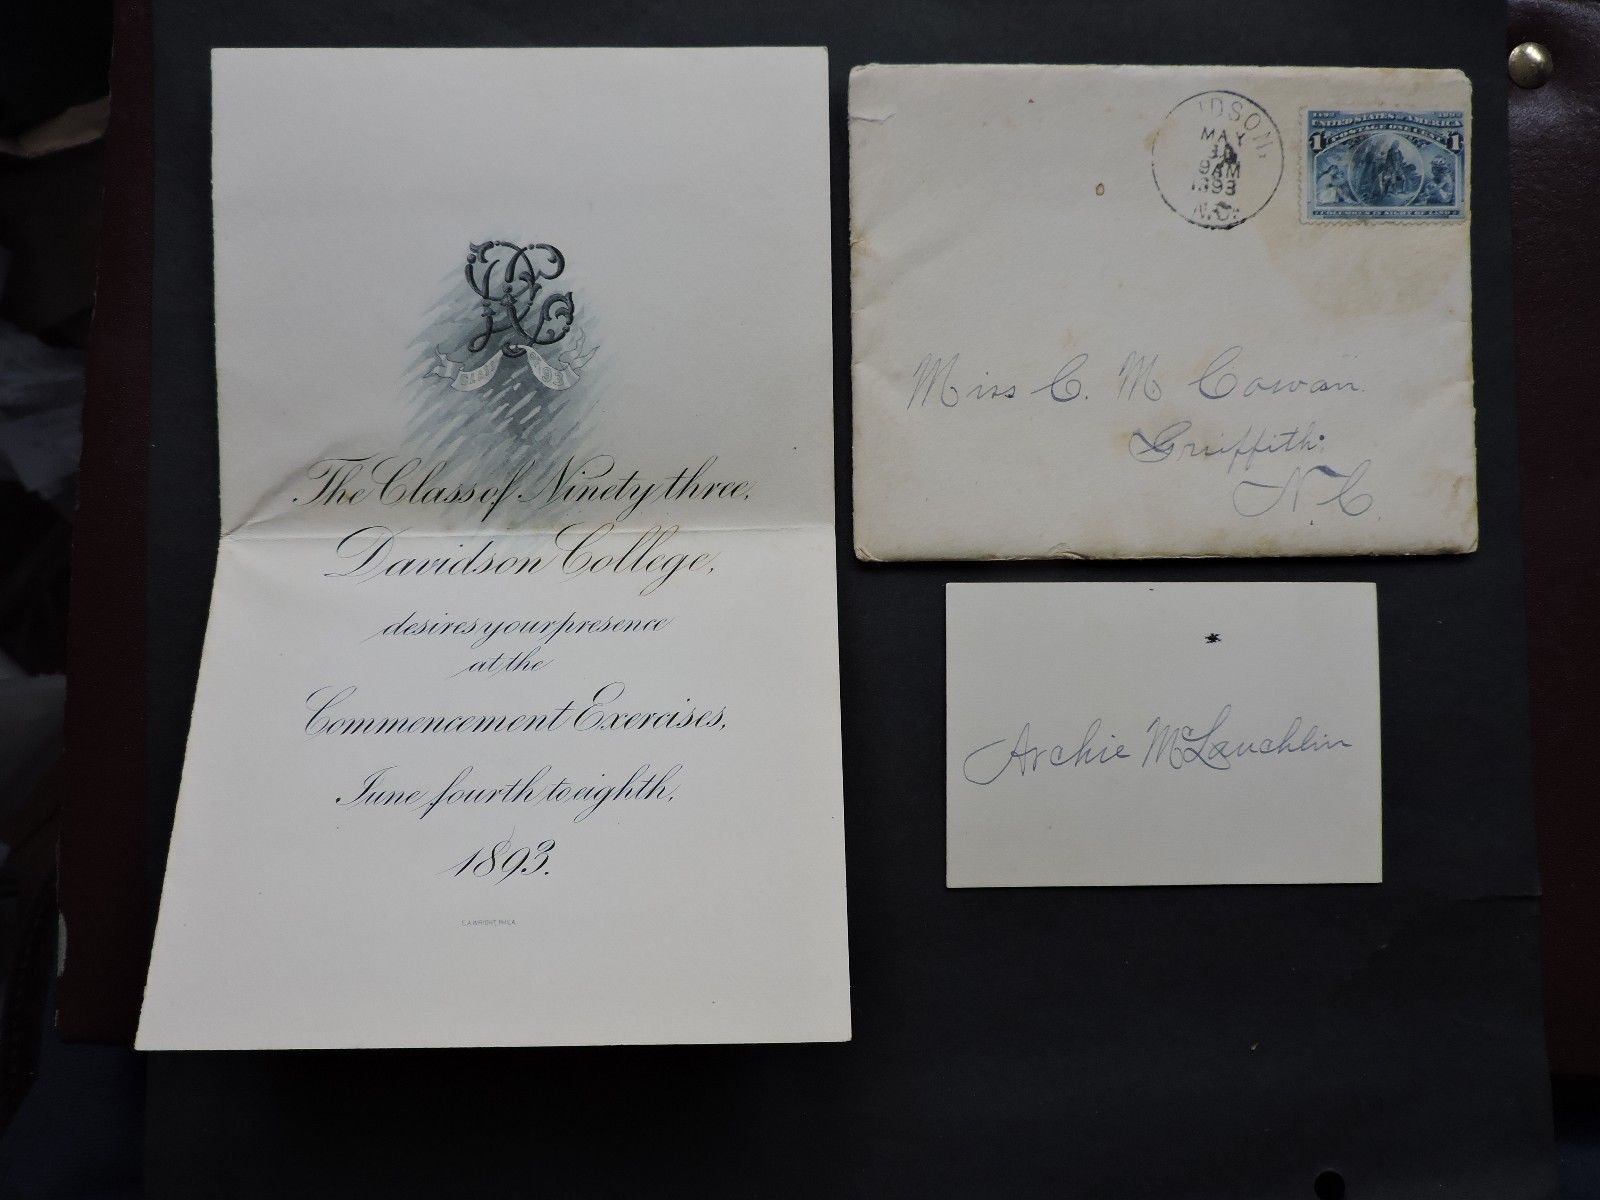 CLASS OF 93
The Class of Ninety three,
Davidson College,
desires your presence
at the
Commencement Exercises,
June fourth to eighth,
1893.
E.A. WRIGHT, PHILA.
IDSON,
MAY
9AM
1893
N.C.
1492 1892
UNITED STATES OF AMERICA
POSTAGE ONE CENT
1 1
COLUMBUS IN SIGHT OF LAND
Miss C. M Cowan
Griffith.
N.C.
Archie McLauchlin